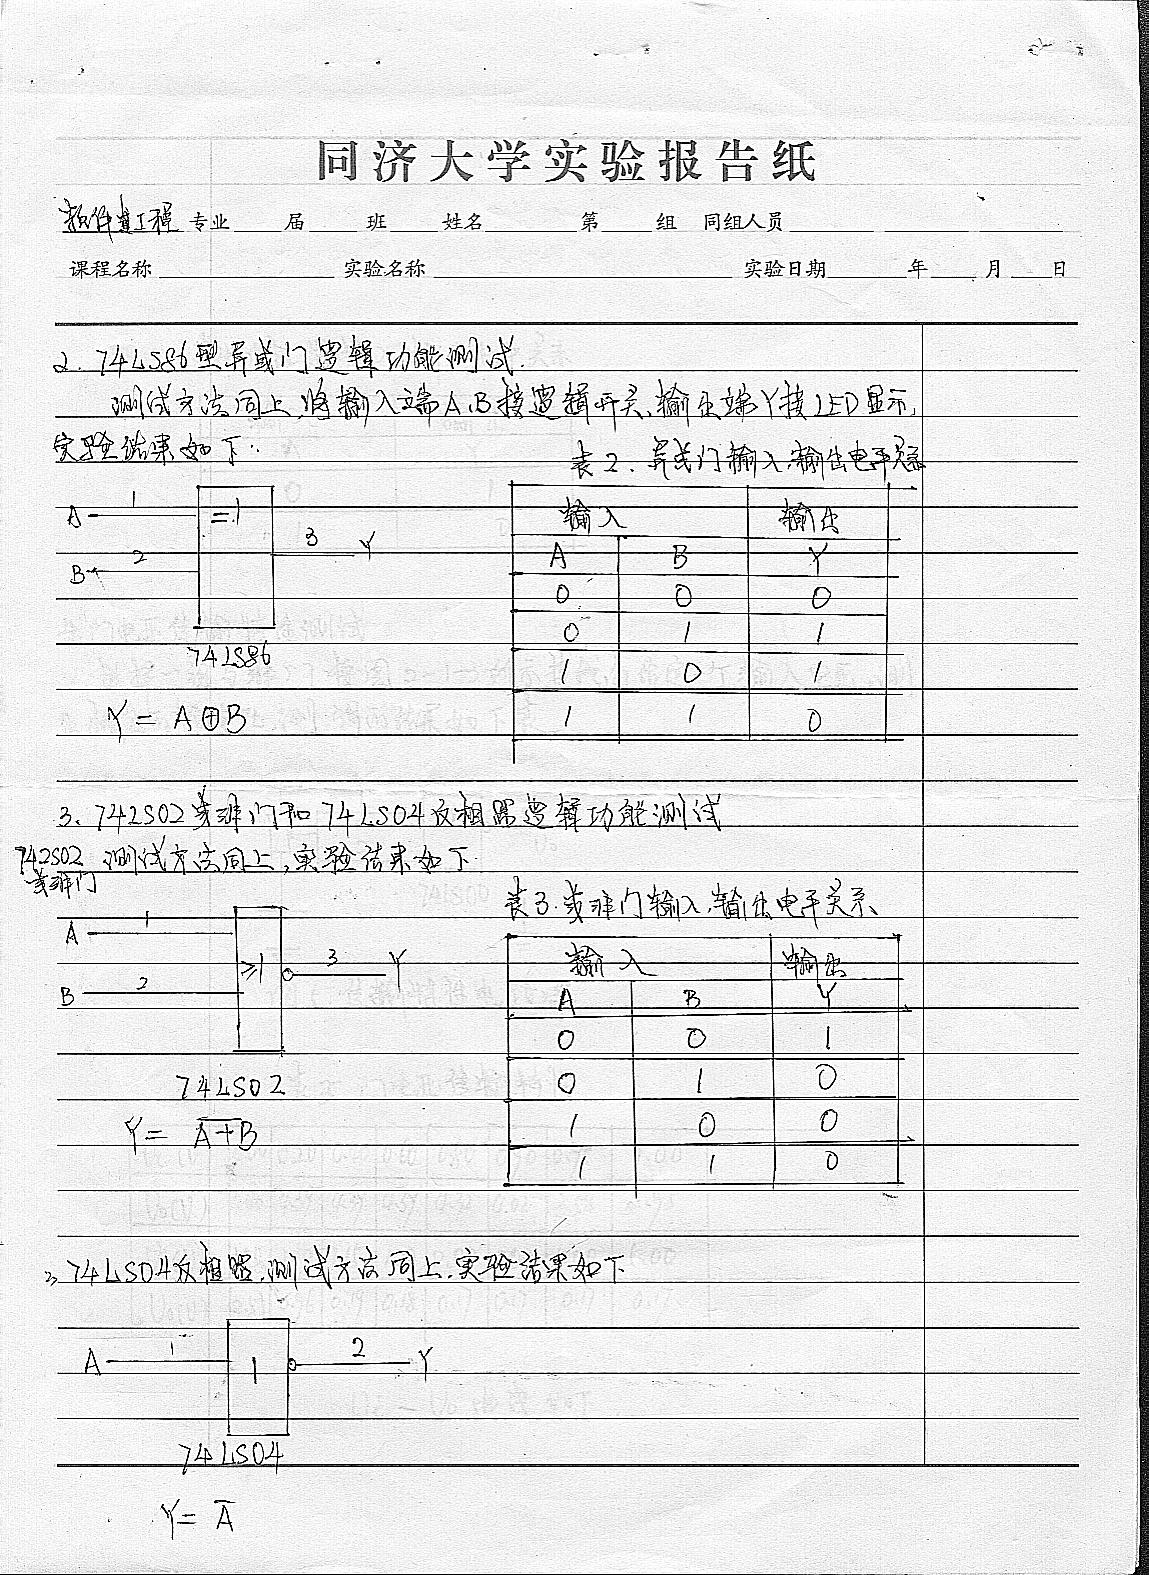 同济大学实验报告纸
软件工程 专业 届 班 姓名 第 组 同组人员
课程名称 实验名称 实验日期 年 月 日
2. 74LS86型异或门逻辑功能测试.
测试方法同上,将输入端A、B接逻辑开关、输出端Y接LED显示,
实验结果如下:
表2. 异或门输入、输出电平关系
A 1 =1
B 2 3 Y
74LS86
Y = A⊕B
输入 输出
A B Y
0 0 0
0 1 1
1 0 1
1 1 0
3、74LS02或非门和74LS04反相器逻辑功能测试
74LS02 测试方法同上,实验结果如下.
或非门
表3.或非门输入、输出电平关系
A 1
B 2 ≥1 3 Y
74LS02
Y = \overline{A+B}
输入 输出
A B Y
0 0 1
0 1 0
1 0 0
1 1 0
74LS04反相器.测试方法同上,实验结果如下
A 1 1 2 Y
74LS04
Y = \overline{A}